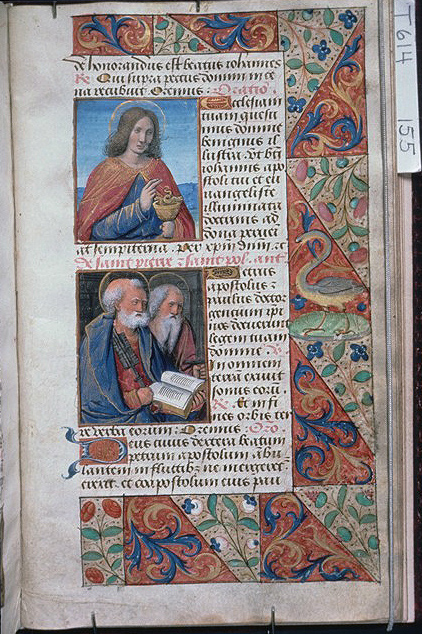 de honorandus est beatus iohannes
℟ Qui supra pectus domini in ce
na recubuit Oremus Oratio
Ecclesiam
tuam quesu
mus domine
benignus il
lustra vt bti
iohannis apo
stoli tui et eu
angeliste
illuminata
doctrinis ad
dona perueni
at sempiterna per xpm dnm
de sainct pierre & sainct pol ant
Petrus
apostolus &
paulus doctor
gentium ipi
nos docuerunt
legem tuam
domine
In omnem
terram exiuit
sonus eorum
℟ Et in fi
nes orbis ter
re verba eorum Oremus Oro
Deus cuius dextera beatum
petrum apostolum ambu
lantem in fluctib ne mergeret
erexit et coapostolum eius pau
T614
155